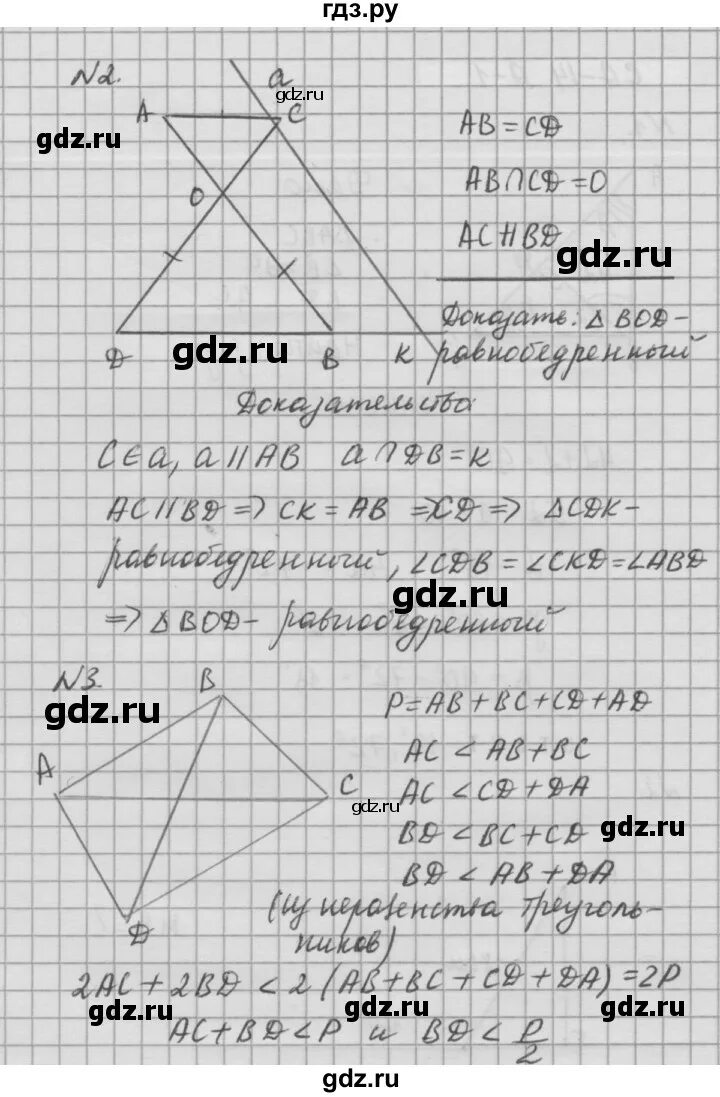 гдз.ру
N2.
a
gdz.ru
A
C
AB = CD
gdz.ru
AB∩CD = O
O
AC∥BD
gdz.ru
Доказать: △BOD-
D
gdz.ru
B
K
равнобедренный
Доказательство
C∈a, a∥AB a∩DB = K
AC∥BD => CK = AB => CD => △CDK-
равнобедренный, ∠CDB = ∠CKD = ∠ABD
gdz.ru
=> △BOD- равнобедренный
N3.
B
gdz.ru
P = AB + BC + CD + AD
AC < AB + BC
A
C
AC < CD + DA
gdz.ru
BD < BC + CD
gdz.ru
BD < AB + DA
D
(из неравенства треуголь-
ников)
2AC + 2BD < 2 (AB + BC + CD + DA) = 2P
gdz.ru
gdz.ru
gdz.ru
AC + BD < P и BD < P/2
gdz.ru